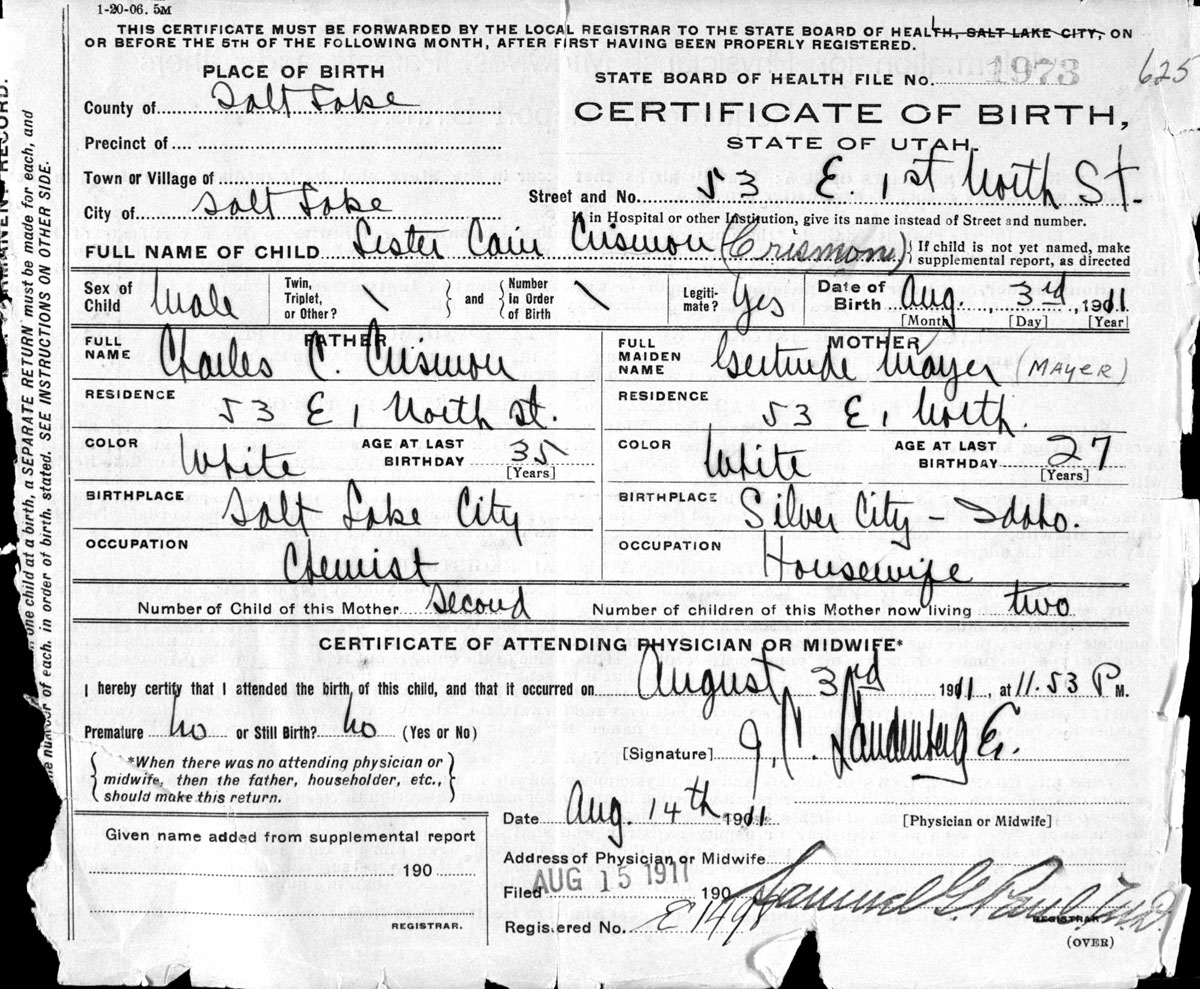 1-20-06. 5M
THIS CERTIFICATE MUST BE FORWARDED BY THE LOCAL REGISTRAR TO THE STATE BOARD OF HEALTH, SALT LAKE CITY, ON
OR BEFORE THE 5TH OF THE FOLLOWING MONTH, AFTER FIRST HAVING BEEN PROPERLY REGISTERED.
PLACE OF BIRTH
STATE BOARD OF HEALTH FILE No. 1973 625
County of Salt Lake
CERTIFICATE OF BIRTH,
STATE OF UTAH.
Precinct of
Town or Village of
Street and No. 53 E, 1st North St.
City of Salt Lake
If in Hospital or other Institution, give its name instead of Street and number.
FULL NAME OF CHILD Lester Cain Crismon (Crismon) { If child is not yet named, make supplemental report, as directed
Sex of Child Male Twin, Triplet, or Other? \ } and { Number In Order of Birth \ Legiti-mate? Yes Date of Birth Aug. 3rd, 1911
[Month] [Day] [Year]
FATHER MOTHER
FULL NAME Charles C. Crismon FULL MAIDEN NAME Gertrude Mayer (MAYER)
RESIDENCE 53 E, North St. RESIDENCE 53 E, North.
COLOR White AGE AT LAST BIRTHDAY 35 [Years] COLOR White AGE AT LAST BIRTHDAY 27 [Years]
BIRTHPLACE Salt Lake City BIRTHPLACE Silver City - Idaho.
OCCUPATION Chemist OCCUPATION Housewife
Number of Child of this Mother Second Number of children of this Mother now living two
CERTIFICATE OF ATTENDING PHYSICIAN OR MIDWIFE*
I hereby certify that I attended the birth of this child, and that it occurred on August 3rd 1911, at 11.53 P M.
Premature No or Still Birth? No (Yes or No)
[Signature]
*When there was no attending physician or
midwife, then the father, householder, etc.,
should make this return.
Date Aug. 14th 1911 [Physician or Midwife]
Given name added from supplemental report
190
REGISTRAR.
Address of Physician or Midwife
Filed AUG 15 1911 190
Samuel G. Paul, M.D.
REGISTRAR
Registered No.
(OVER)
one child at a birth, a SEPARATE RETURN must be made for each, and
number of each, in order of birth, stated. SEE INSTRUCTIONS ON OTHER SIDE.
RECORD.